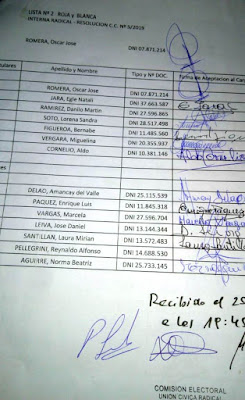 LISTA Nº 2 - ROJA y BLANCA
INTERNA RADICAL - RESOLUCION C.C. Nº 6/2019
ROMERA, Oscar Jose
DNI 07.871.214
Apellido y Nombre Tipo y Nº DOC. Firma de Aceptacion al
ROMERA, Oscar Jose DNI 07.871.214
JARA, Egle Natali DNI 37.663.587
RAMIREZ, Danilo Martin DNI 27.596.865
SOTO, Lorena Sandra DNI 28.517.498
FIGUEROA, Bernabe DNI 11.485.560
VERGARA, Miguelina DNI 20.355.937
CORNELIO, Aldo DNI 10.381.146
DELAO, Amancay del Valle DNI 25.115.539
PAQUEZ, Enrique Luis DNI 11.845.318
VARGAS, Marcela DNI 27.596.704
LEIVA, Jose Daniel DNI 13.144.344
SANTILLAN, Laura Mirian DNI 13.572.483
PELLEGRINI, Reynaldo Alfonso DNI 14.688.530
AGUIRRE, Norma Beatriz DNI 25.733.145
Recibido el 25
a los 19:45
COMISION ELECTORAL
UNION CIVICA RADICAL